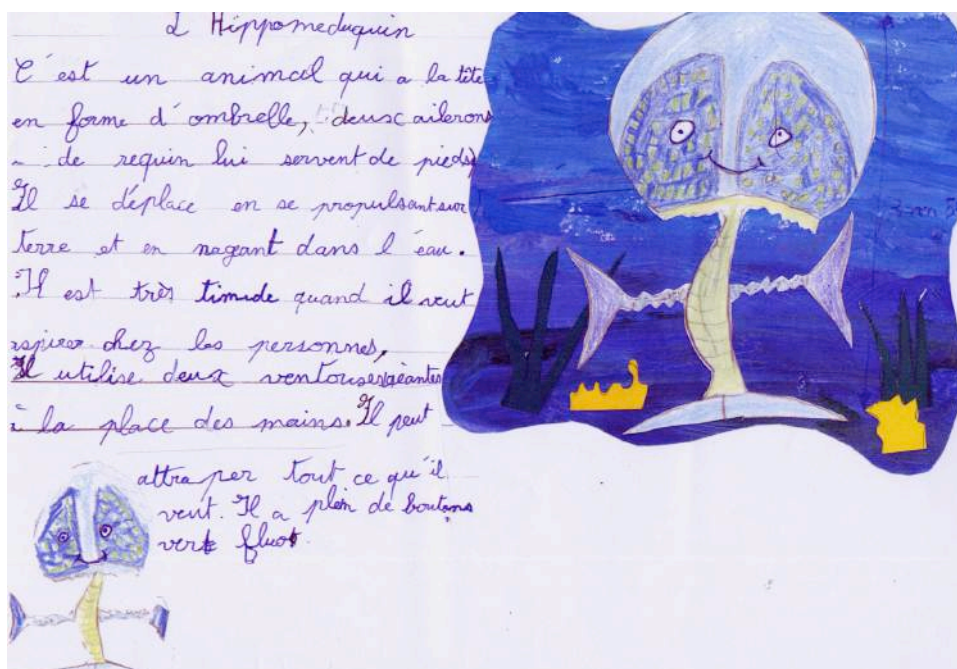 L'Hippomeduquin
C'est un animal qui a la tête
en forme d'ombrelle, deux ailerons
de requin lui servent de pieds,
Il se déplace en se propulsant sur
terre et en nageant dans l'eau.
Il est très timide quand il veut
chez les personnes,
Il utilise deux ventouses géantes
à la place des mains. Il peut
attraper tout ce qu'il
veut. Il a plein de boutons
verts fluos.